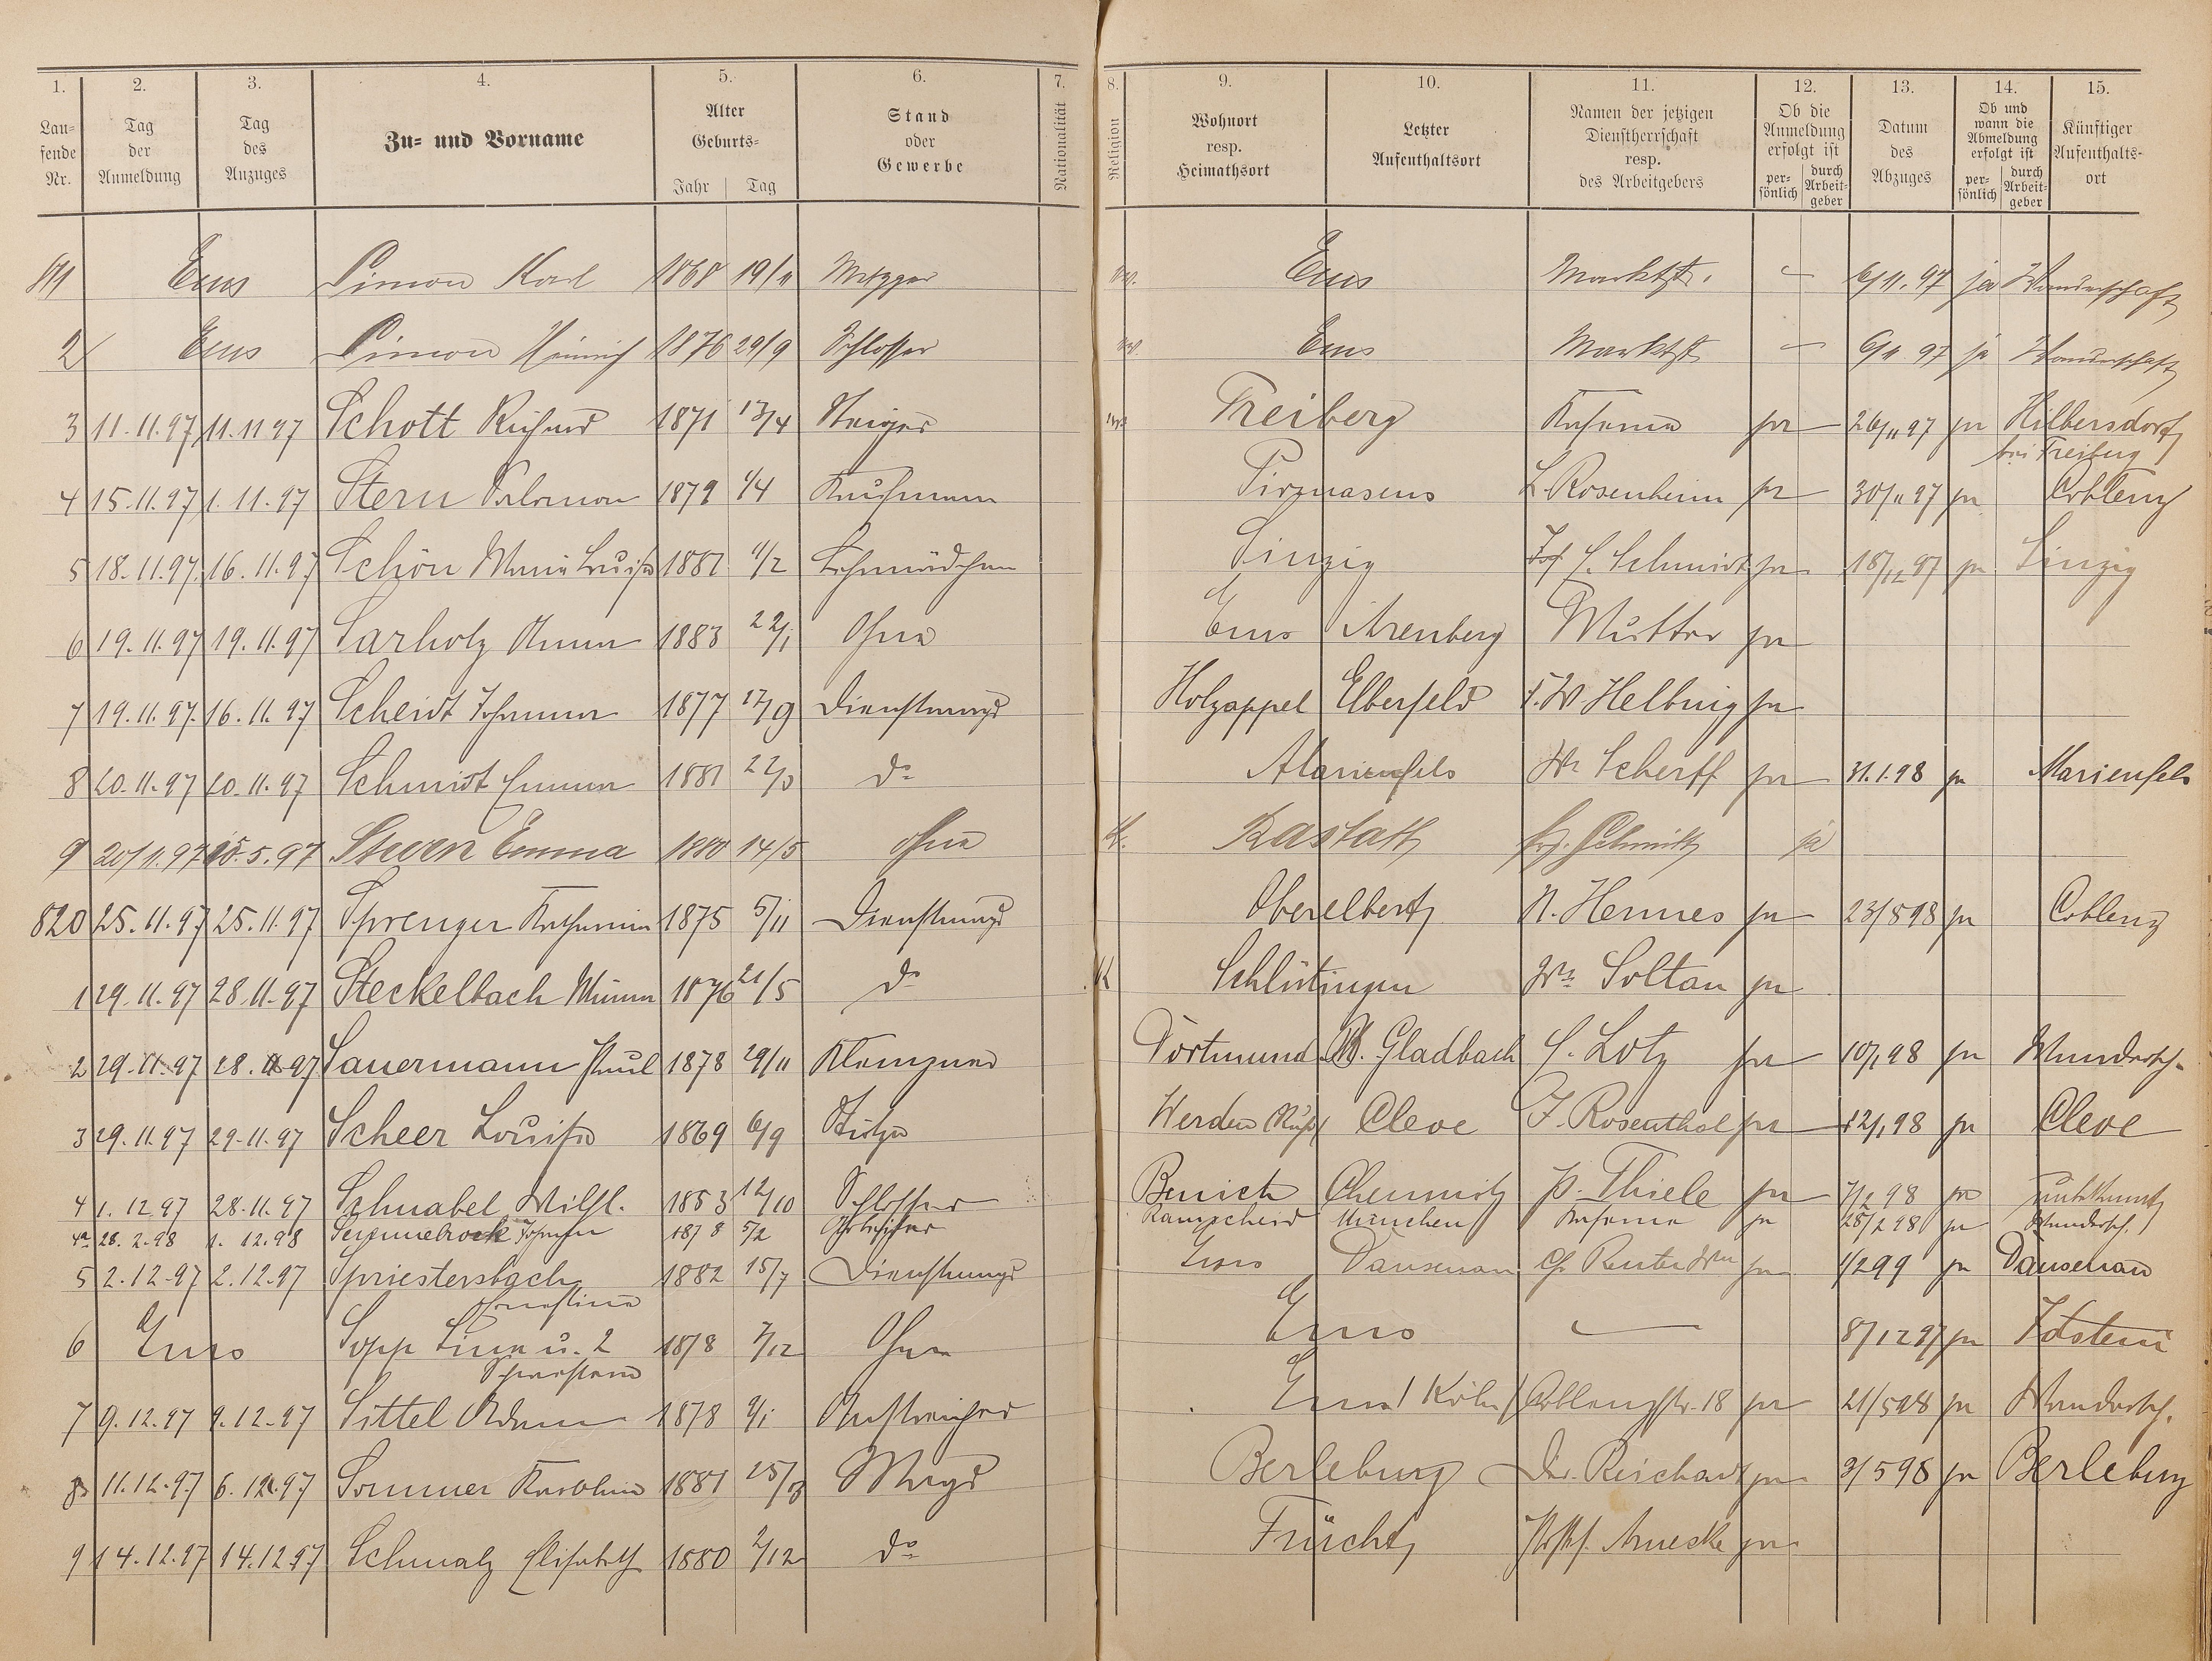 1. 2. 3. 4. 5. 6. 7. 8. 9. 10. 11. 12. 13. 14. 15.
Lau-
fende
Nr.
Tag
der
Anmeldung
Tag
des
Anzuges
Zu- und Vorname
Alter
Geburts-
Jahr Tag
Stand
oder
Gewerbe
Nationalität
Religion
Wohnort
resp.
Heimathsort
Letzter
Aufenthaltsort
Namen der jetzigen
Dienstherrschaft
resp.
des Arbeitgebers
Ob die
Anmeldung
erfolgt ist
per-
sönlich
durch
Arbeit-
geber
Datum
des
Abzuges
Ob und
wann die
Abmeldung
erfolgt ist
per-
sönlich
durch
Arbeit-
geber
Künftiger
Aufenthalts-
ort
Ems Simon Karl 1868 19/11 Metzger Ems Marktstr. 6/11.97 ja Wanderschaft
2 Ems Simon Heinrich 1876 29/9 Schlosser Ems Marktst 6/11 97 ja Wanderschaft
3 11.11.97 11.11 97 Schott Richard 1871 13/4 Steiger Freiberg Kaserne ja 26/11 97 ja Hilbersdorf
bei Freiberg
4 15.11.97 1.11.97 Stern Salomon 1879 1/4 Kaufmann Pirmasens L. Rosenheim ja 30/11 97 ja Coblenz
5 18.11.97 16.11.97 Schön Maria Louise 1881 4/2 Lehrmädchen Sinzig Schmidt ja 18/12 97 ja Sinzig
6 19.11.97 19.11.97 Sarholz Anna 1883 22/1 Ohne Ems Arenberg Mutter ja
7 19.11.97. 16.11.97 Scheidt Johanna 1877 17/9 Dienstmagd Holzappel Elberfeld F. W Helbing ja
8 20.11.97 20.11.97 Schmidt Emma 1881 22/3 do Marienfels Wr Scherff ja 31.1.98 ja Marienfels
9 20/11.97 15.5.97 Stern Emma 1880 14/5 ohne K. Rastatt Schmitt ja
820 25.11.97 25.11.97 Sprenger Katharina 1875 5/11 Dienstmagd Oberelbert N. Hermes ja 23/5 98 ja Coblenz
1 29.11.97 28.11.97 Steckelbach Minna 1876 21/5 do K Schlüchtingen Wr Soltau ja
2 29.11.97 28.11 97 Sauermann Paul 1878 29/11 Klempner Dortmund M. Gladbach C. Lotz ja 10/1 98 ja Wandersch.
3 29.11.97 29.11.97 Scheer Louise 1869 6/9 Stütze Werden Cleve J. Rosenthal ja 12/1 98 ja Cleve
4 1.12 97 28.11.97 Schnabel Wilh. 1853 12/10 Schlosser Chemnitz P. Thiele ja 7/2 98 ja unbekannt
4a 28. 2.98 1. 12.98 1878 5/2 Remscheid München Kaserne ja 28/2 98 ja Wandersch.
5 2.12.97 2.12.97 Spriestersbach 1882 15/7 Dienstmagd Ems Dausenau Reuter Wwe ja 1/2 99 ja Dausenau
Ernestine
6 Ems Sopp Lina u. 2 1878 7/12 Ohne Ems 8/12 97 ja Idstein
Schwestern
7 9.12.97 9.12.97 Sittel Adam 1878 9/1 Anstreicher Ems (Köln) Coblenzstr. 18 ja 21/5 98 ja Wandersch.
8 11.12.97 6.12.97 Sommer Karoline 1881 25/3 Magd Berleburg Dr. Reichard ja 3/5 98 ja Berleburg
9 14.12.97 14.12.97 Schmalz Elisabeth 1880 2/12 do Frücht Arnecke ja